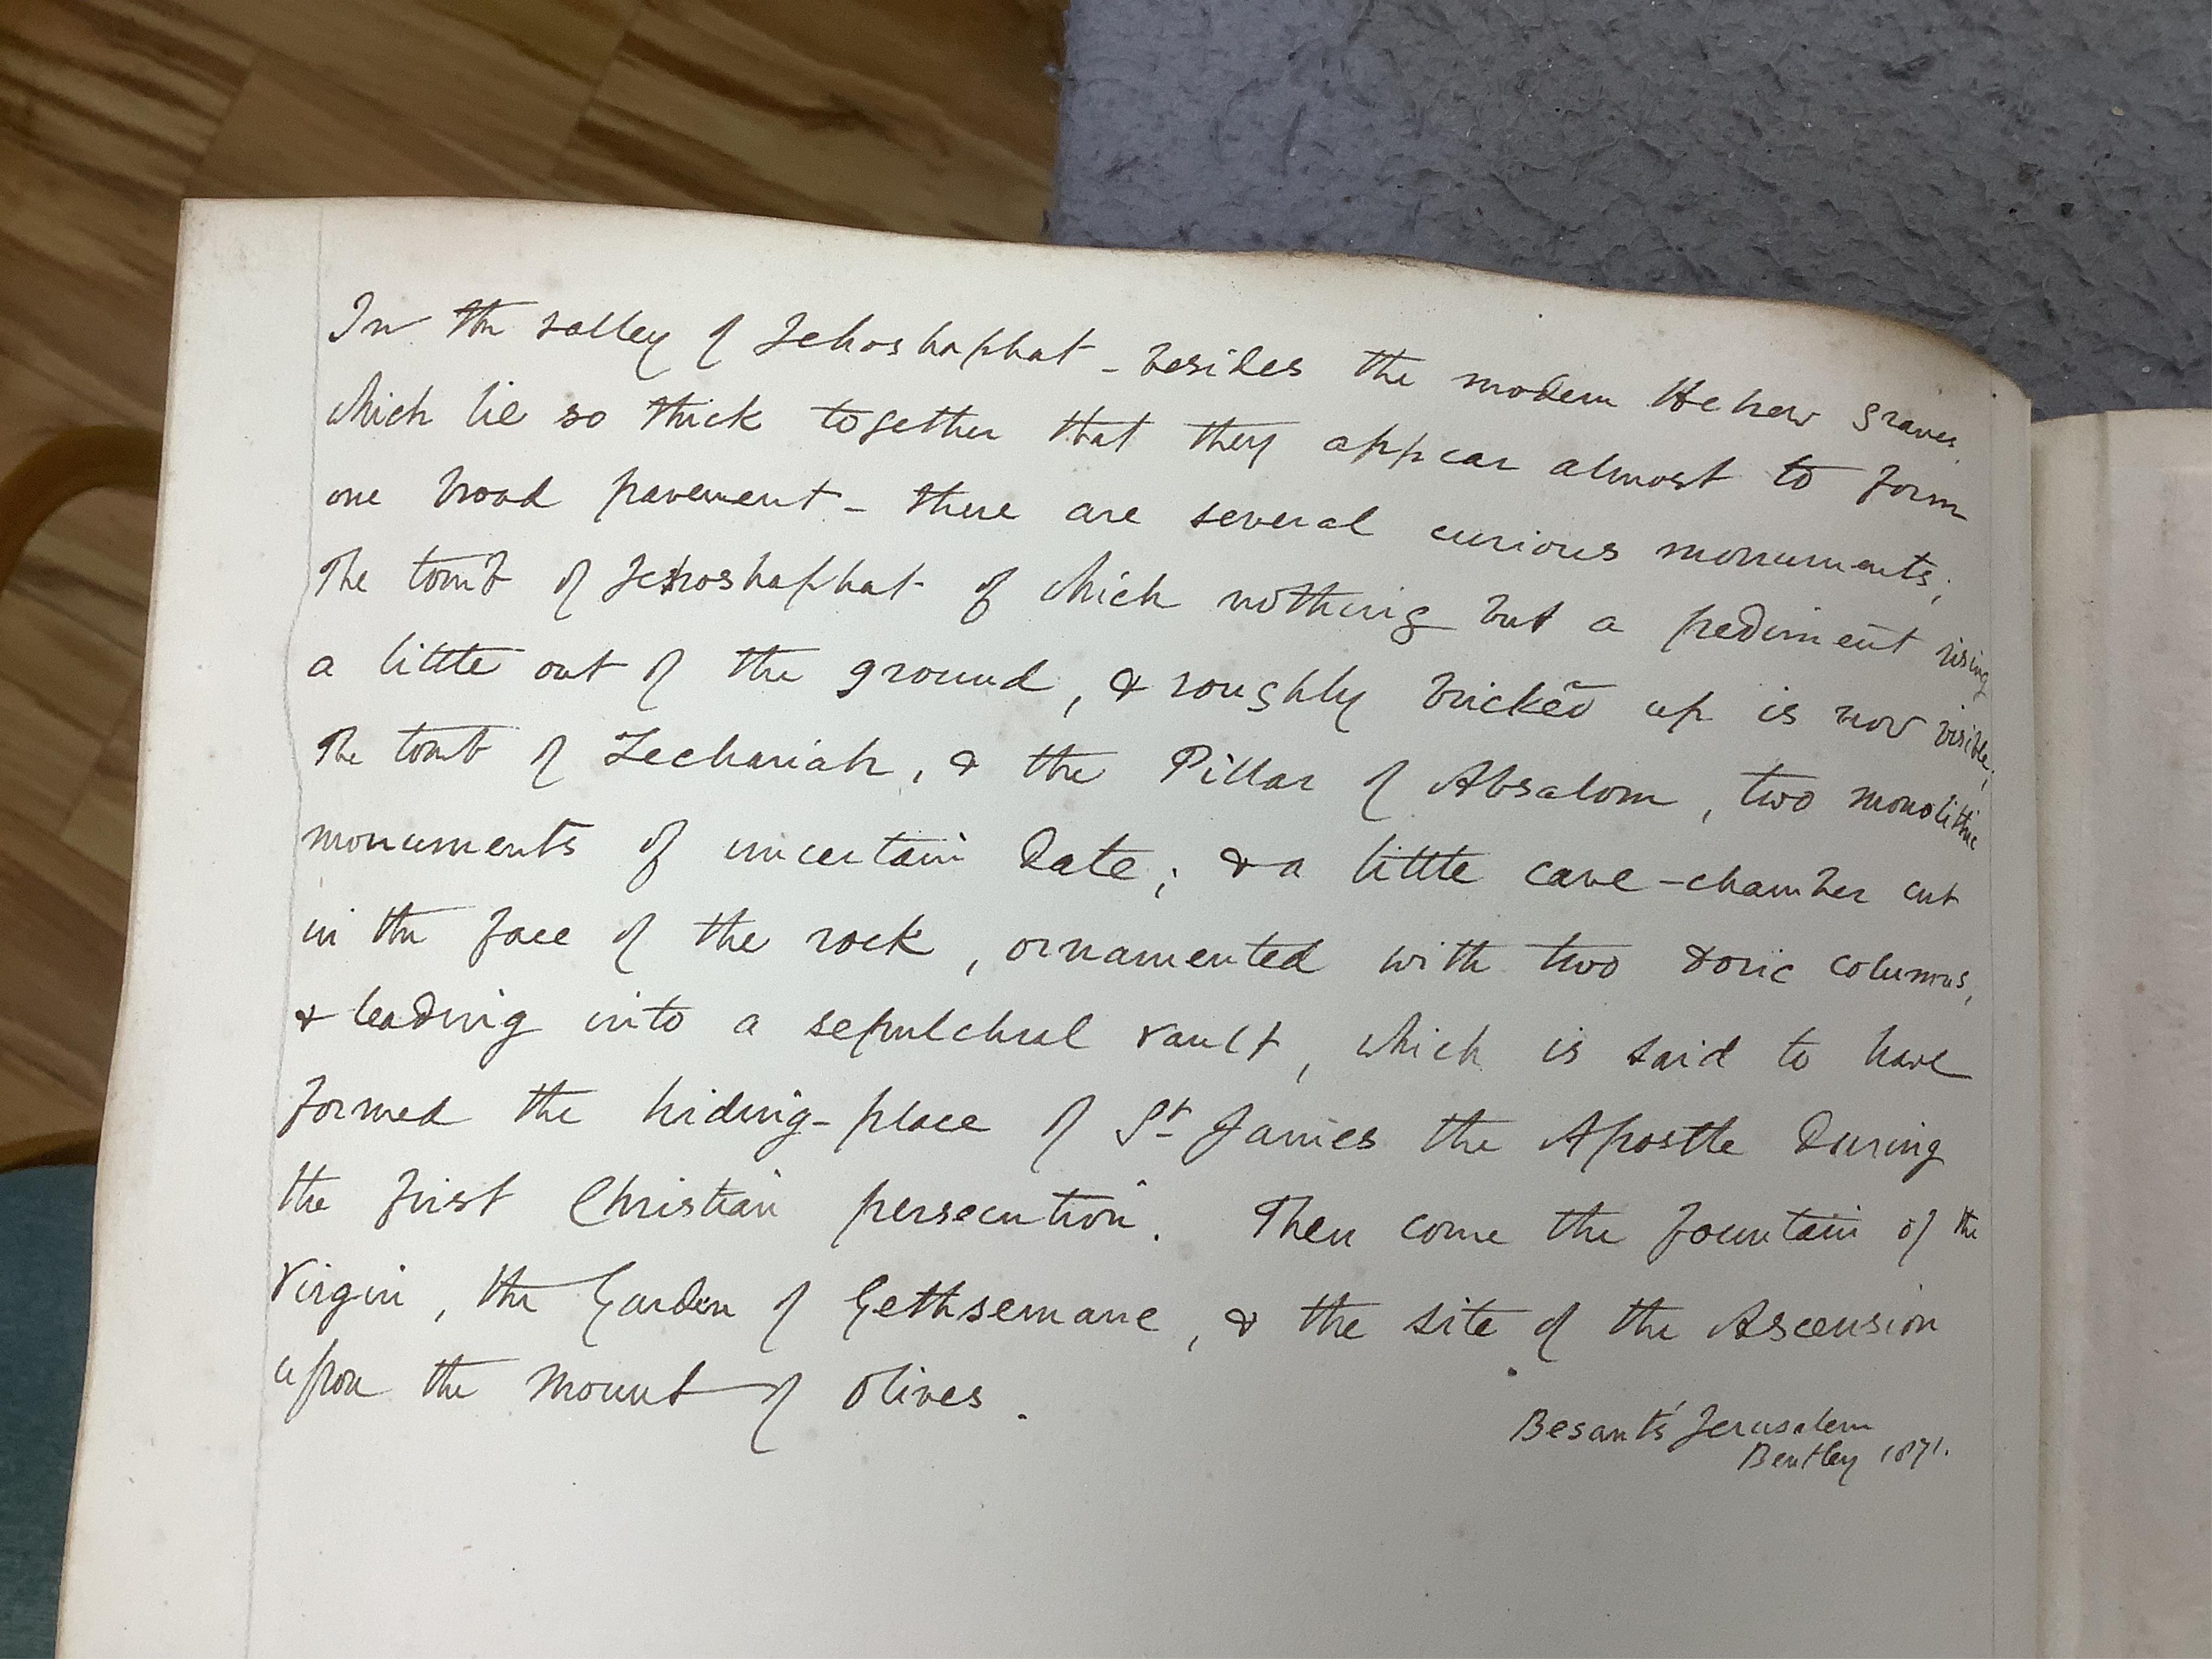 In the valley of Jehoshaphat - besides the modern Hebrew graves
which lie so thick together that they appear almost to form
one broad pavement - there are several curious monuments;
The tomb of Jehoshaphat of which nothing but a pediment rising
a little out of the ground, & roughly bricked up is now visible;
The tomb of Zechariah, & the Pillar of Absalom, two monolithic
monuments of uncertain date; & a little cave-chamber cut
in the face of the rock, ornamented with two doric columns,
& leading into a sepulchral vault, which is said to have
formed the hiding-place of St James the Apostle during
the first Christian persecution. Then come the fountain of the
Virgin, the Garden of Gethsemane, & the site of the Ascension
upon the Mount of Olives.
Besant's Jerusalem
Bentley 1871.